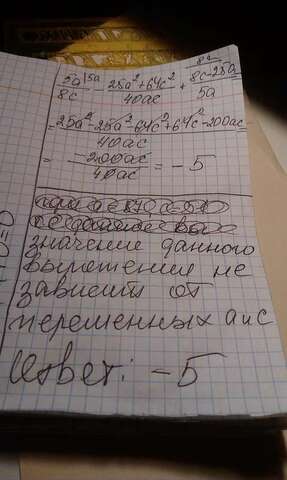 5a/8c |5a − (25a²+64c²)/40ac + (8c−25a)/5a |8c
= (25a²−25a²−64c²+64c²−200ac)/40ac
= −200ac/40ac = −5
значение данного
выражения не
зависит от
переменных a и c
Ответ: −5